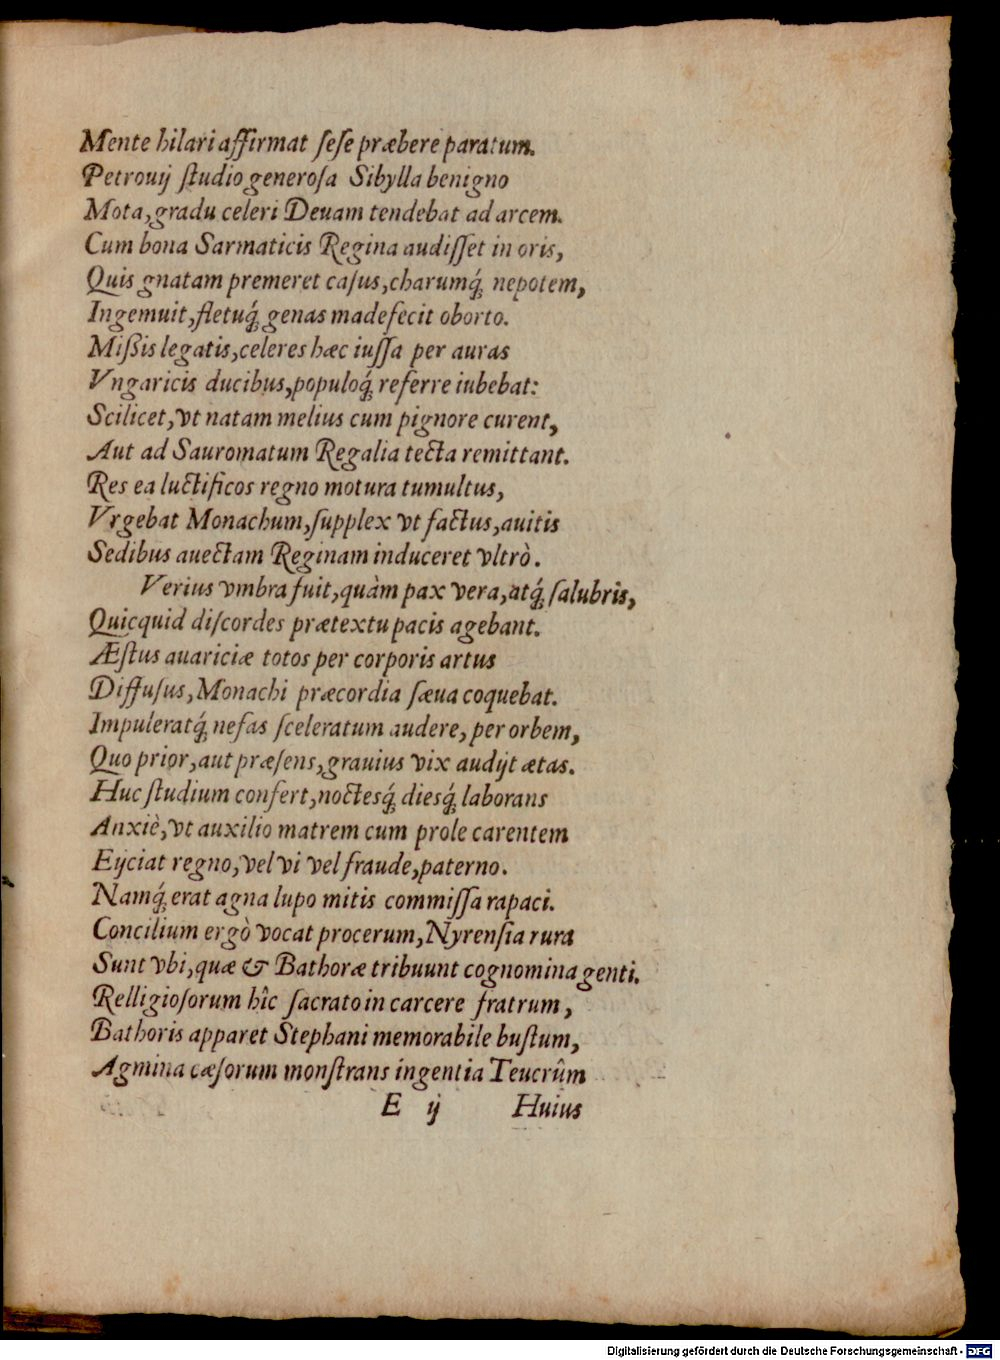 Mente hilari affirmat ſeſe præbere paratum.
Petrouij ſtudio generoſa Sibylla benigno
Mota, gradu celeri Deuam tendebat ad arcem.
Cum bona Sarmaticis Regina audiſſet in oris,
Quis gnatam premeret caſus, charumq́; nepotem,
Ingemuit, fletuq́; genas madefecit oborto.
Mißis legatis, celeres hæc iuſſa per auras
Vngaricis ducibus, populoq́; referre iubebat:
Scilicet, vt natam melius cum pignore curent,
Aut ad Sauromatum Regalia tecta remittant.
Res ea luctificos regno motura tumultus,
Vrgebat Monachum, ſupplex vt factus, auitis
Sedibus auectam Reginam induceret vltrò.
Verius vmbra fuit, quàm pax vera, atq́; ſalubris,
Quicquid diſcordes prætextu pacis agebant.
Æſtus auariciæ totos per corporis artus
Diffuſus, Monachi præcordia ſæua coquebat.
Impuleratq́; nefas ſceleratum audere, per orbem,
Quo prior, aut præſens, grauius vix audijt ætas.
Huc ſtudium confert, noctesq́; diesq́; laborans
Anxiè, vt auxilio matrem cum prole carentem
Eijciat regno, vel vi vel fraude, paterno.
Namq́; erat agna lupo mitis commiſſa rapaci.
Concilium ergò vocat procerum, Nyrenſia rura
Sunt vbi, quæ & Bathoræ tribuunt cognomina genti.
Relligioſorum hîc ſacrato in carcere fratrum,
Bathoris apparet Stephani memorabile buſtum,
Agmina cæſorum monſtrans ingentia Teucrûm
E ij Huius
Digitalisierung gefördert durch die Deutsche Forschungsgemeinschaft - DFG